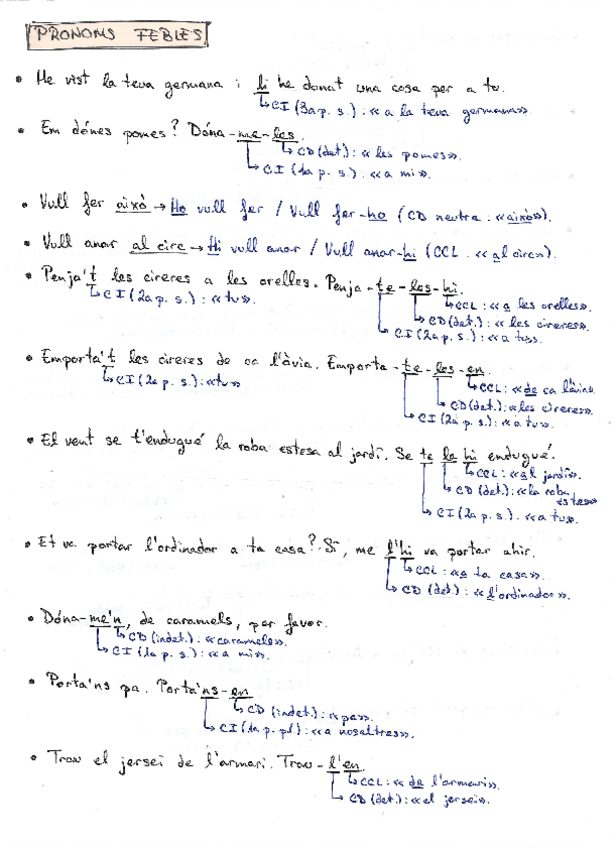 PRONOMS FEBLES
• He vist la teva germana i li he donat una cosa per a tu.
↳ CI (3a p. s.): «a la teva germana»
• Em dónes pomes? Dóna-me-les.
↳ CD (det.): «les pomes».
↳ CI (1a p. s.): «a mi».
• Vull fer això → Ho vull fer / Vull fer-ho (CD neutre: «això»).
• Vull anar al circ → Hi vull anar / Vull anar-hi (CCL: «al circ»).
• Penja't les cireres a les orelles. Penja-te-les-hi.
↳ CI (2a p. s.): «tu».
↳ CCL: «a les orelles».
↳ CD (det.): «les cireres».
↳ CI (2a p. s.): «a tu».
• Emporta't les cireres de ca l'àvia. Emporta-te-les-en.
↳ CI (2a p. s.): «tu»
↳ CCL: «de ca l'àvia».
↳ CD (det.): «les cireres».
↳ CI (2a p. s.): «a tu».
• El vent se t'endugué la roba estesa al jardí. Se te la hi endugué.
↳ CCL: «al jardí».
↳ CD (det.): «la roba estesa»
↳ CI (2a p. s.): «a tu».
• Et va portar l'ordinador a ta casa? Sí, me l'hi va portar ahir.
↳ CCL: «a ta casa».
↳ CD (det.): «l'ordinador».
• Dóna-me'n, de caramels, per favor.
↳ CD (indet.): «caramels».
↳ CI (1a p. s.): «a mi».
• Porta'ns pa. Porta'ns-en
↳ CD (indet.): «pa».
↳ CI (1a p. pl): «a nosaltres».
• Trau el jersei de l'armari. Trau-l'en.
↳ CCL: «de l'armari».
↳ CD (det.): «el jersei».